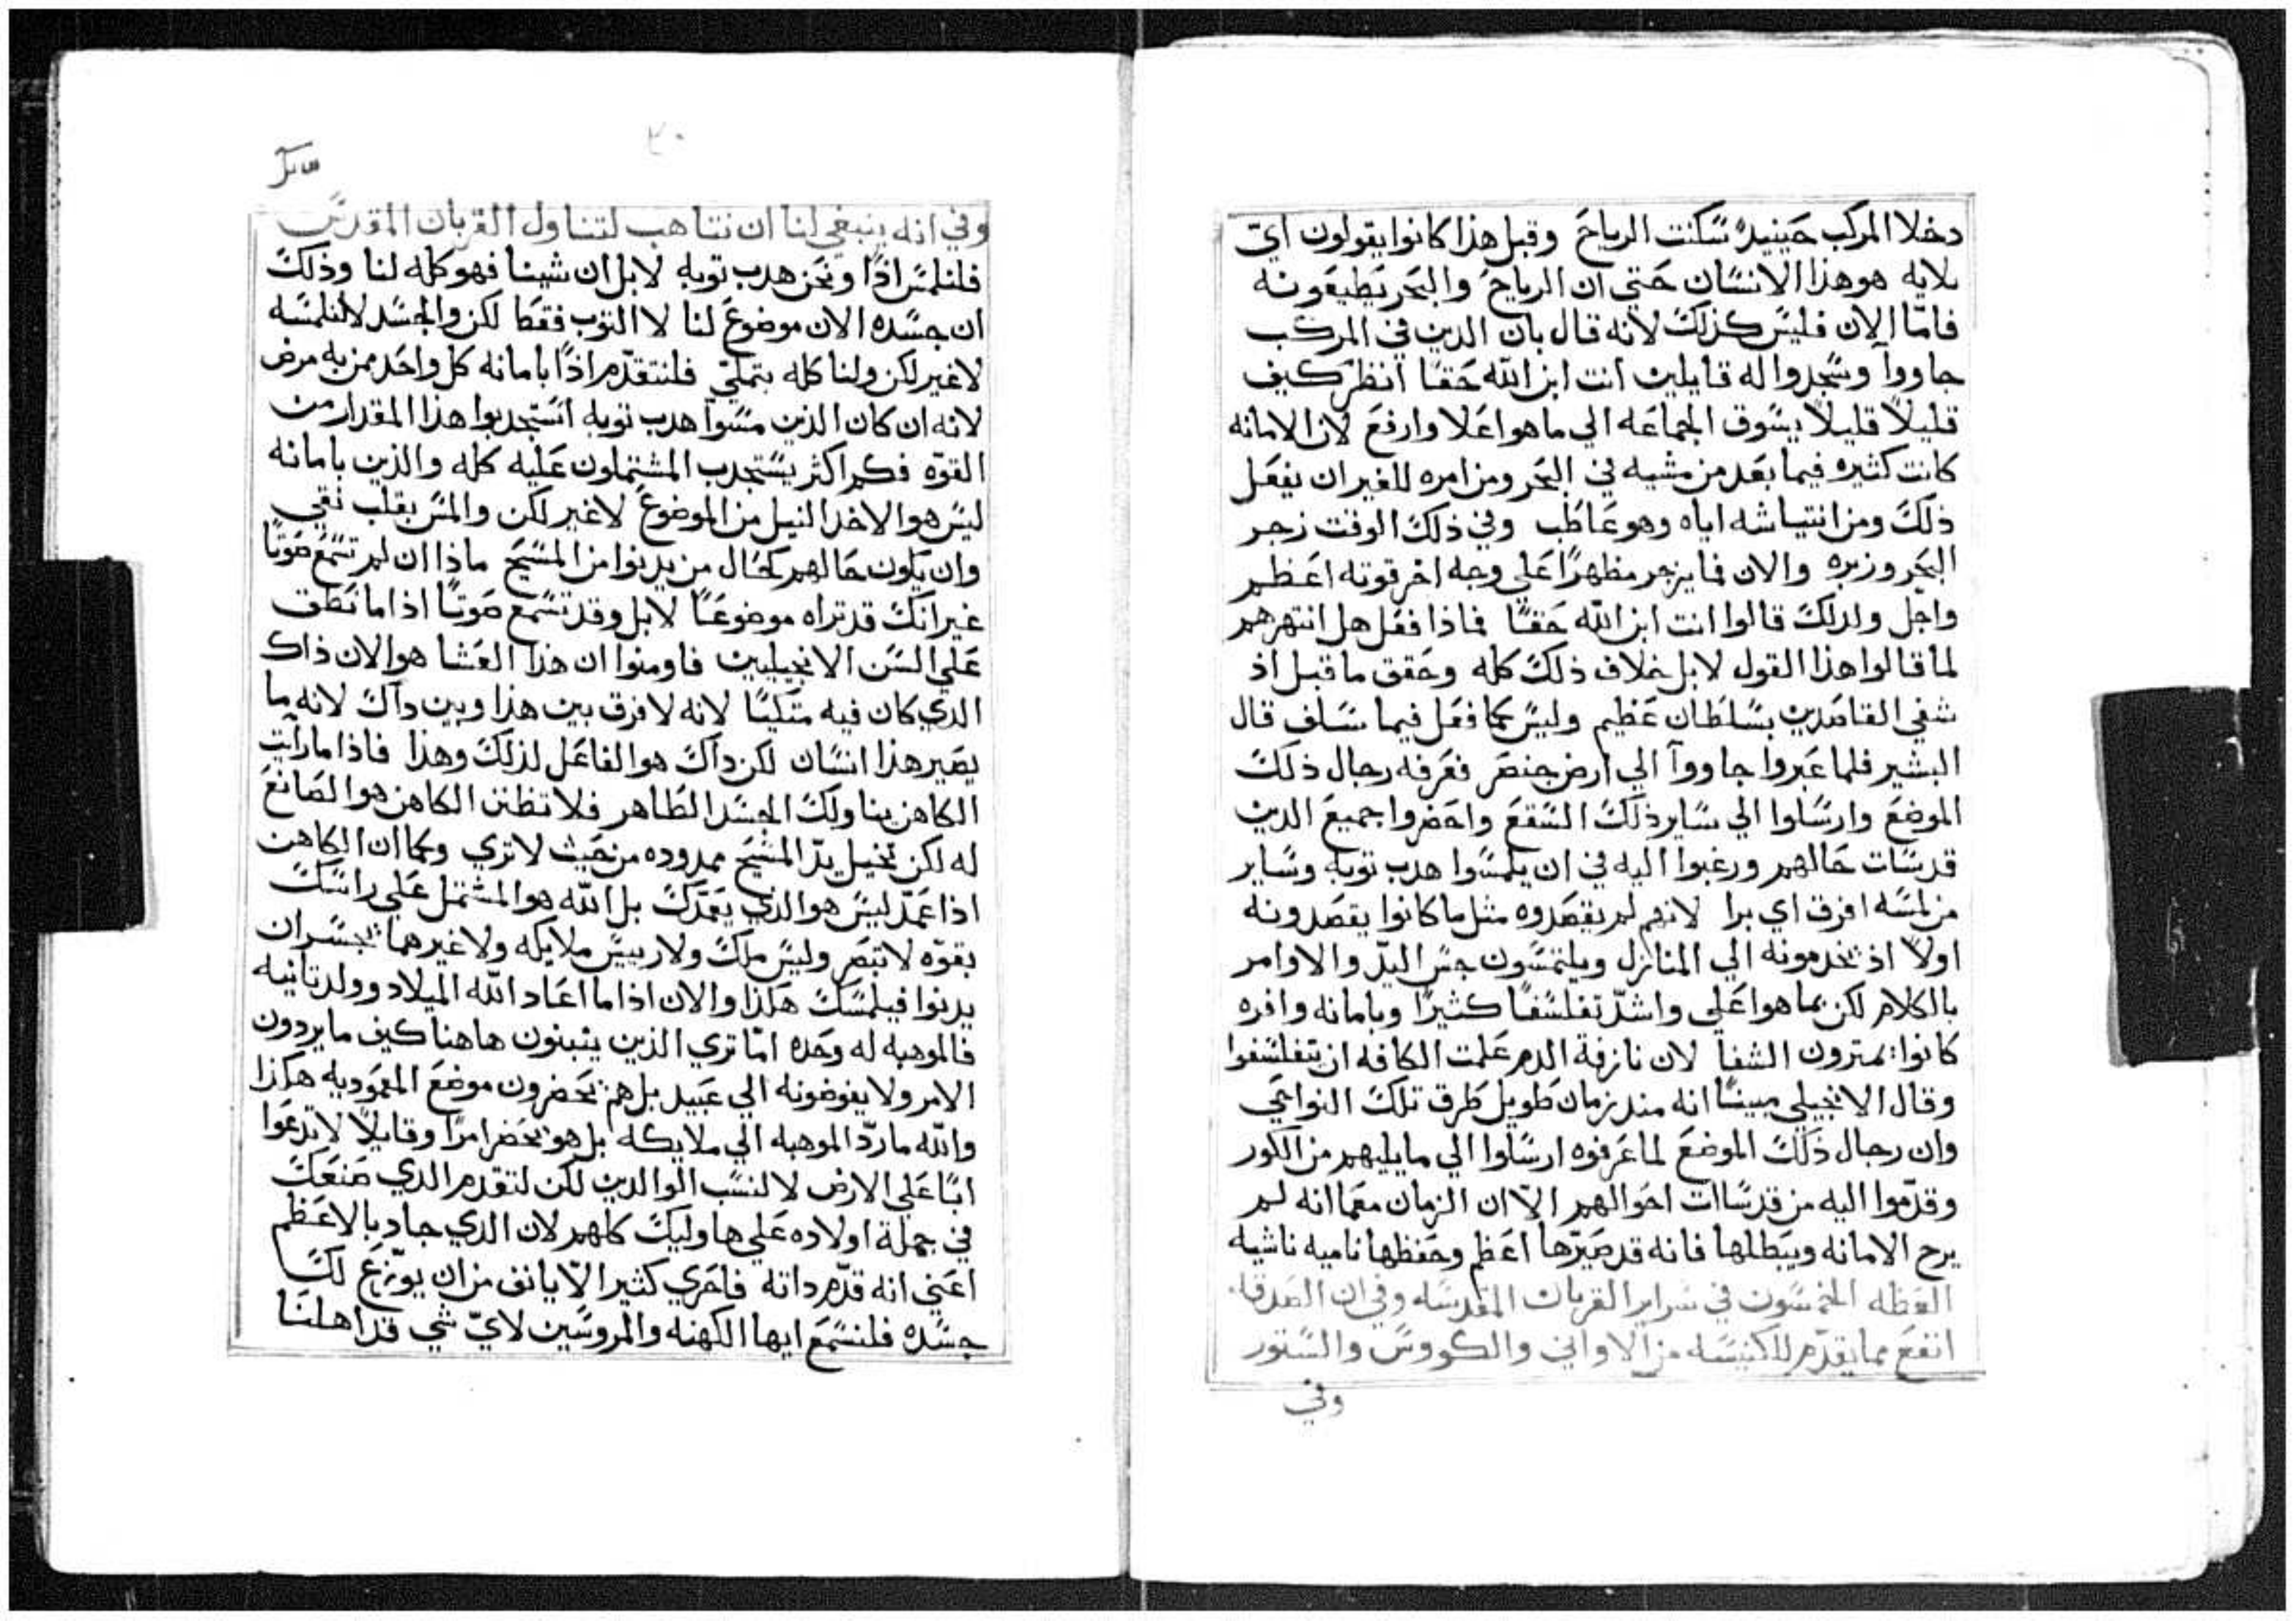 دخلا المركب حينيدٍ سكنت الرياح وقبل هذا كانوا يقولون اي
بلايه هو هذا الانسان حتي ان الرياح والبحر يطيعونه
فامّا الان فليس كذلك لانه قال بان الدين في المركب
جاووا وسجدوا له قايلين انت ابن الله حقا انظر كيف
قليلاً قليلاً يسوق الجماعه الي ما هو اعلا وارفع لان الامانه
كانت كثيره فيما بعد من مشيه في البحر ومن امره للغير ان يفعل
ذلك ومن انتياشه اياه وهو عاطب وفي ذلك الوقت زجر
البحر وزبره والان فما يزجر مظهرًا علي وجه اخر قوته اعظم
واجل ولدلك قالوا انت ابن الله حقًا فماذا فعل هل انتهرهم
لما قالوا هذا القول لا بل خلاف ذلك كله وحقق ما قيل اذ
شفي القاصدين بسلطان عظيم وليس كما فعل فيما سلف قال
البشير فلما عبروا جاووا الي ارض جنصر فعرفه رجال ذلك
الموضع وارسلوا الي ساير ذلك السقع واحضروا جميع الدين
قد سات حالهم ورغبوا اليه في ان يلمسوا هدب توبه وساير
من لمسه افرق اي برا لانهم لم يقصدوه مثل ما كانوا يقصدونه
اولاً اذ يخدمونه الي المنازل ويلتمسون جس اليدّ والاوامر
بالكلام لكن بما هو اعلي واشدّ تفلسفًا كثيرًا وبامانه وافره
كانوا يمترون الشفا لان نازفة الدم علمت الكافه ان يتفلسفوا
وقال الانجيلي مبينًا انه مند زمان طويل طرق تلك النواحي
وان رجال ذلك الموضع لما عرفوه ارسلوا الي ما يليهم من الكور
وقدّموا اليه من قد سات احوالهم الاّ ان الزمان معما انه لم
يرح الامانه ويبطلها فانه قد صيّرها اعظم وحفظها ناميه ناشيه
العظه الخمسون في سراير القربان المقدسه وفي ان الصدقه
انفع مما يقدّم للكنيسه من الاواني والكووس والستور
وفي
٢٠
وفي انه ينبغي لنا ان نتاهب لتناول القربان المقدس
فلنلمس اذًا ونحن هدب توبه لا بل ان شينا فهو كله لنا وذلك
ان جسده الان موضوع لنا لا التوب فقط لكن والجسد لا لنلمسه
لا غير لكن ولنا كله بتملّي فلنتقدّم اذًا بامانه كل واحد ممن به مرض
لانه ان كان الذين مسوا هدب توبه استجدبوا هذا المقدار من
القوّه فكم اكثر يستجدب المشتملون عليه كله والذين بامانه
ليس هو الاخد النيل من الموضوع لا غير لكن والمس بقلب نقي
وان يكون حالهم كحال من يدنوا من المسيح ماذا ان لم تسمع صوتًا
غير انك قد تراه موضوعًا لا بل وقد تسمع صوتًا اذا ما نطق
علي السن الانجيليين فاومنوا ان هذا العشا هو الان ذاك
الدي كان فيه متكيًا لانه لا فرق بين هذا وبين داك لانه ما
يصير هذا انسان لكن داك هو الفاعل لذلك وهذا فاذا ما رايت
الكاهن يناولك الجسد الطاهر فلا تظنن الكاهن هو الصانع
له لكن تخيل يدّ المسيح ممدوده من حيث لا تري وكما ان الكاهن
اذا عمّد ليس هو الدي يعمّدك بل الله هو المشتمل علي راسك
بقوّه لا تبصر وليس ملك ولا رييس ملايكه ولا غيرهما يجسر ان
يدنوا فيلمسك هكذا والان اذا ما اعاد الله الميلاد وولد تانيه
فالموهبه له وحده امّا تري الذين يتبنون هاهنا كيف ما يردون
الامر ولا يفوضونه الي عبيد بل هم يحضرون موضع المعموديه هكذا
والله ما ردّ الموهبه الي ملايكه بل هو يحضر امرًا وقايلاً لا تدعوا
ابًا علي الارض لا لنسب الوالدين لكن لتقدم الدي صنعك
في جملة اولاده علي هاوليك كلهم لان الدي جاد بالاعظم
اعني انه قدّم داته فاحري كثيرا الاّ يانف من ان يوّزع لك
جسده فلنسمع ايها الكهنه والمروسين لايّ شي قد اهلنا